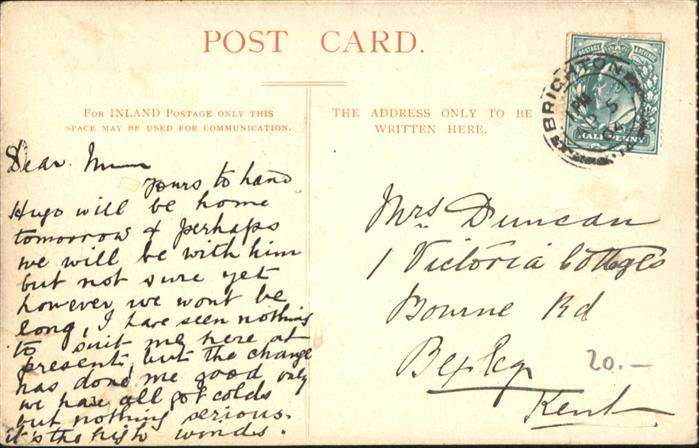 POST CARD.
FOR INLAND POSTAGE ONLY THIS
SPACE MAY BE USED FOR COMMUNICATION.
THE ADDRESS ONLY TO BE
WRITTEN HERE.
BRIGHTON
PM
5
04
POSTAGE
HALFPENNY
Dear Mum
Yours to hand
Hugo will be home
tomorrow & perhaps
we will be with him
but not sure yet
however we wont be
long, I have seen nothing
to suit me here at
present but the change
has done me good only
we have all got colds
but nothing serious.
it's the high winds.
Mrs Duncan
1 Victoria Cottages
Bourne Rd
Bexley
Kent
20.-